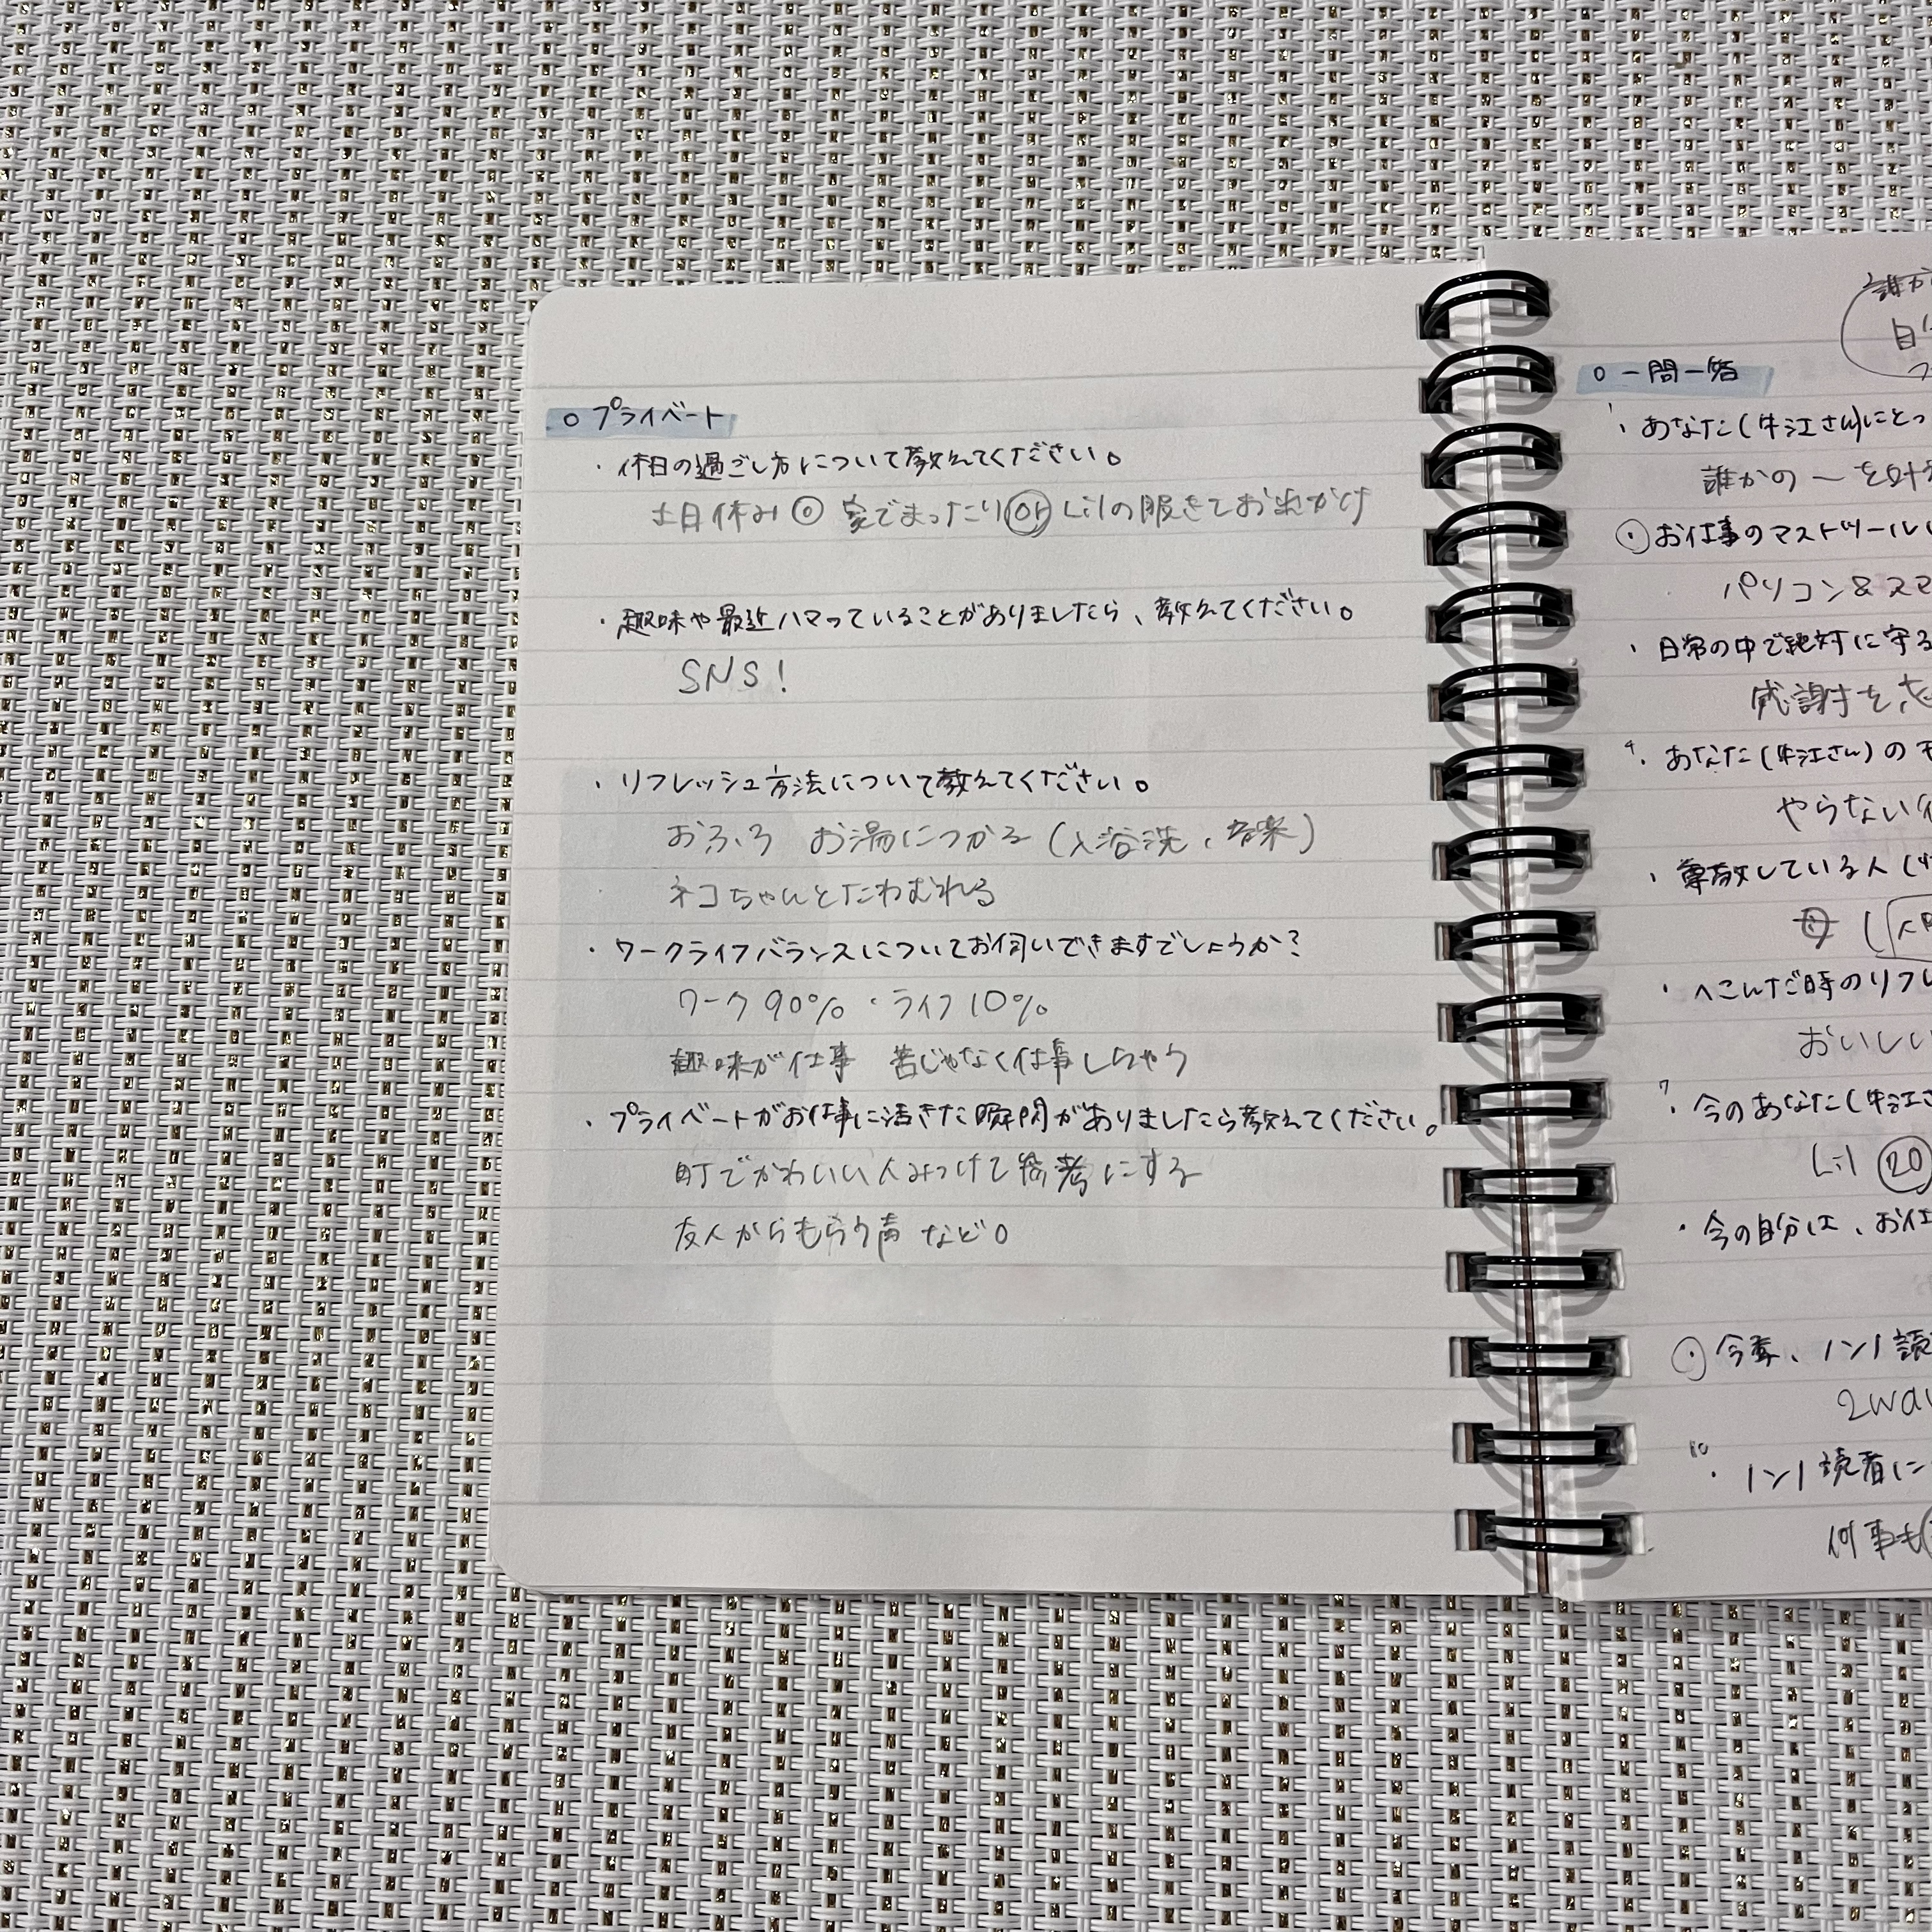 ○プライベート
・休日の過ごし方について教えてください。
土日休み ◎ 家でまったり or Lilの服きておでかけ
・趣味や最近ハマっていることがありましたら、教えてください。
SNS!
・リフレッシュ方法について教えてください。
おふろ お湯につかる (入浴洗、音楽)
ネコちゃんとたわむれる
・ワークライフバランスについてお伺いできますでしょうか?
ワーク90%・ライフ10%
趣味が仕事 苦じゃなく仕事しちゃう
・プライベートがお仕事に活きた瞬間がありましたら教えてください。
町でかわいい人みつけて参考にする
友人からもらう声 など。
誰か
○一問一答
1・あなた(牛江さん)にとっ
誰かの〜を叶
・お仕事のマストツール
パソコン&スマ
・日常の中で絶対に守る
感謝を忘
4・あなた(牛江さん)のモ
やらない
・尊敬している人(
・へこんだ時のリフレ
おいしい
7・今のあなた(牛江さ
Lil 20
・今の自分は、お仕
・今季、ノンノ読
2way
10・ノンノ読者に
何事も